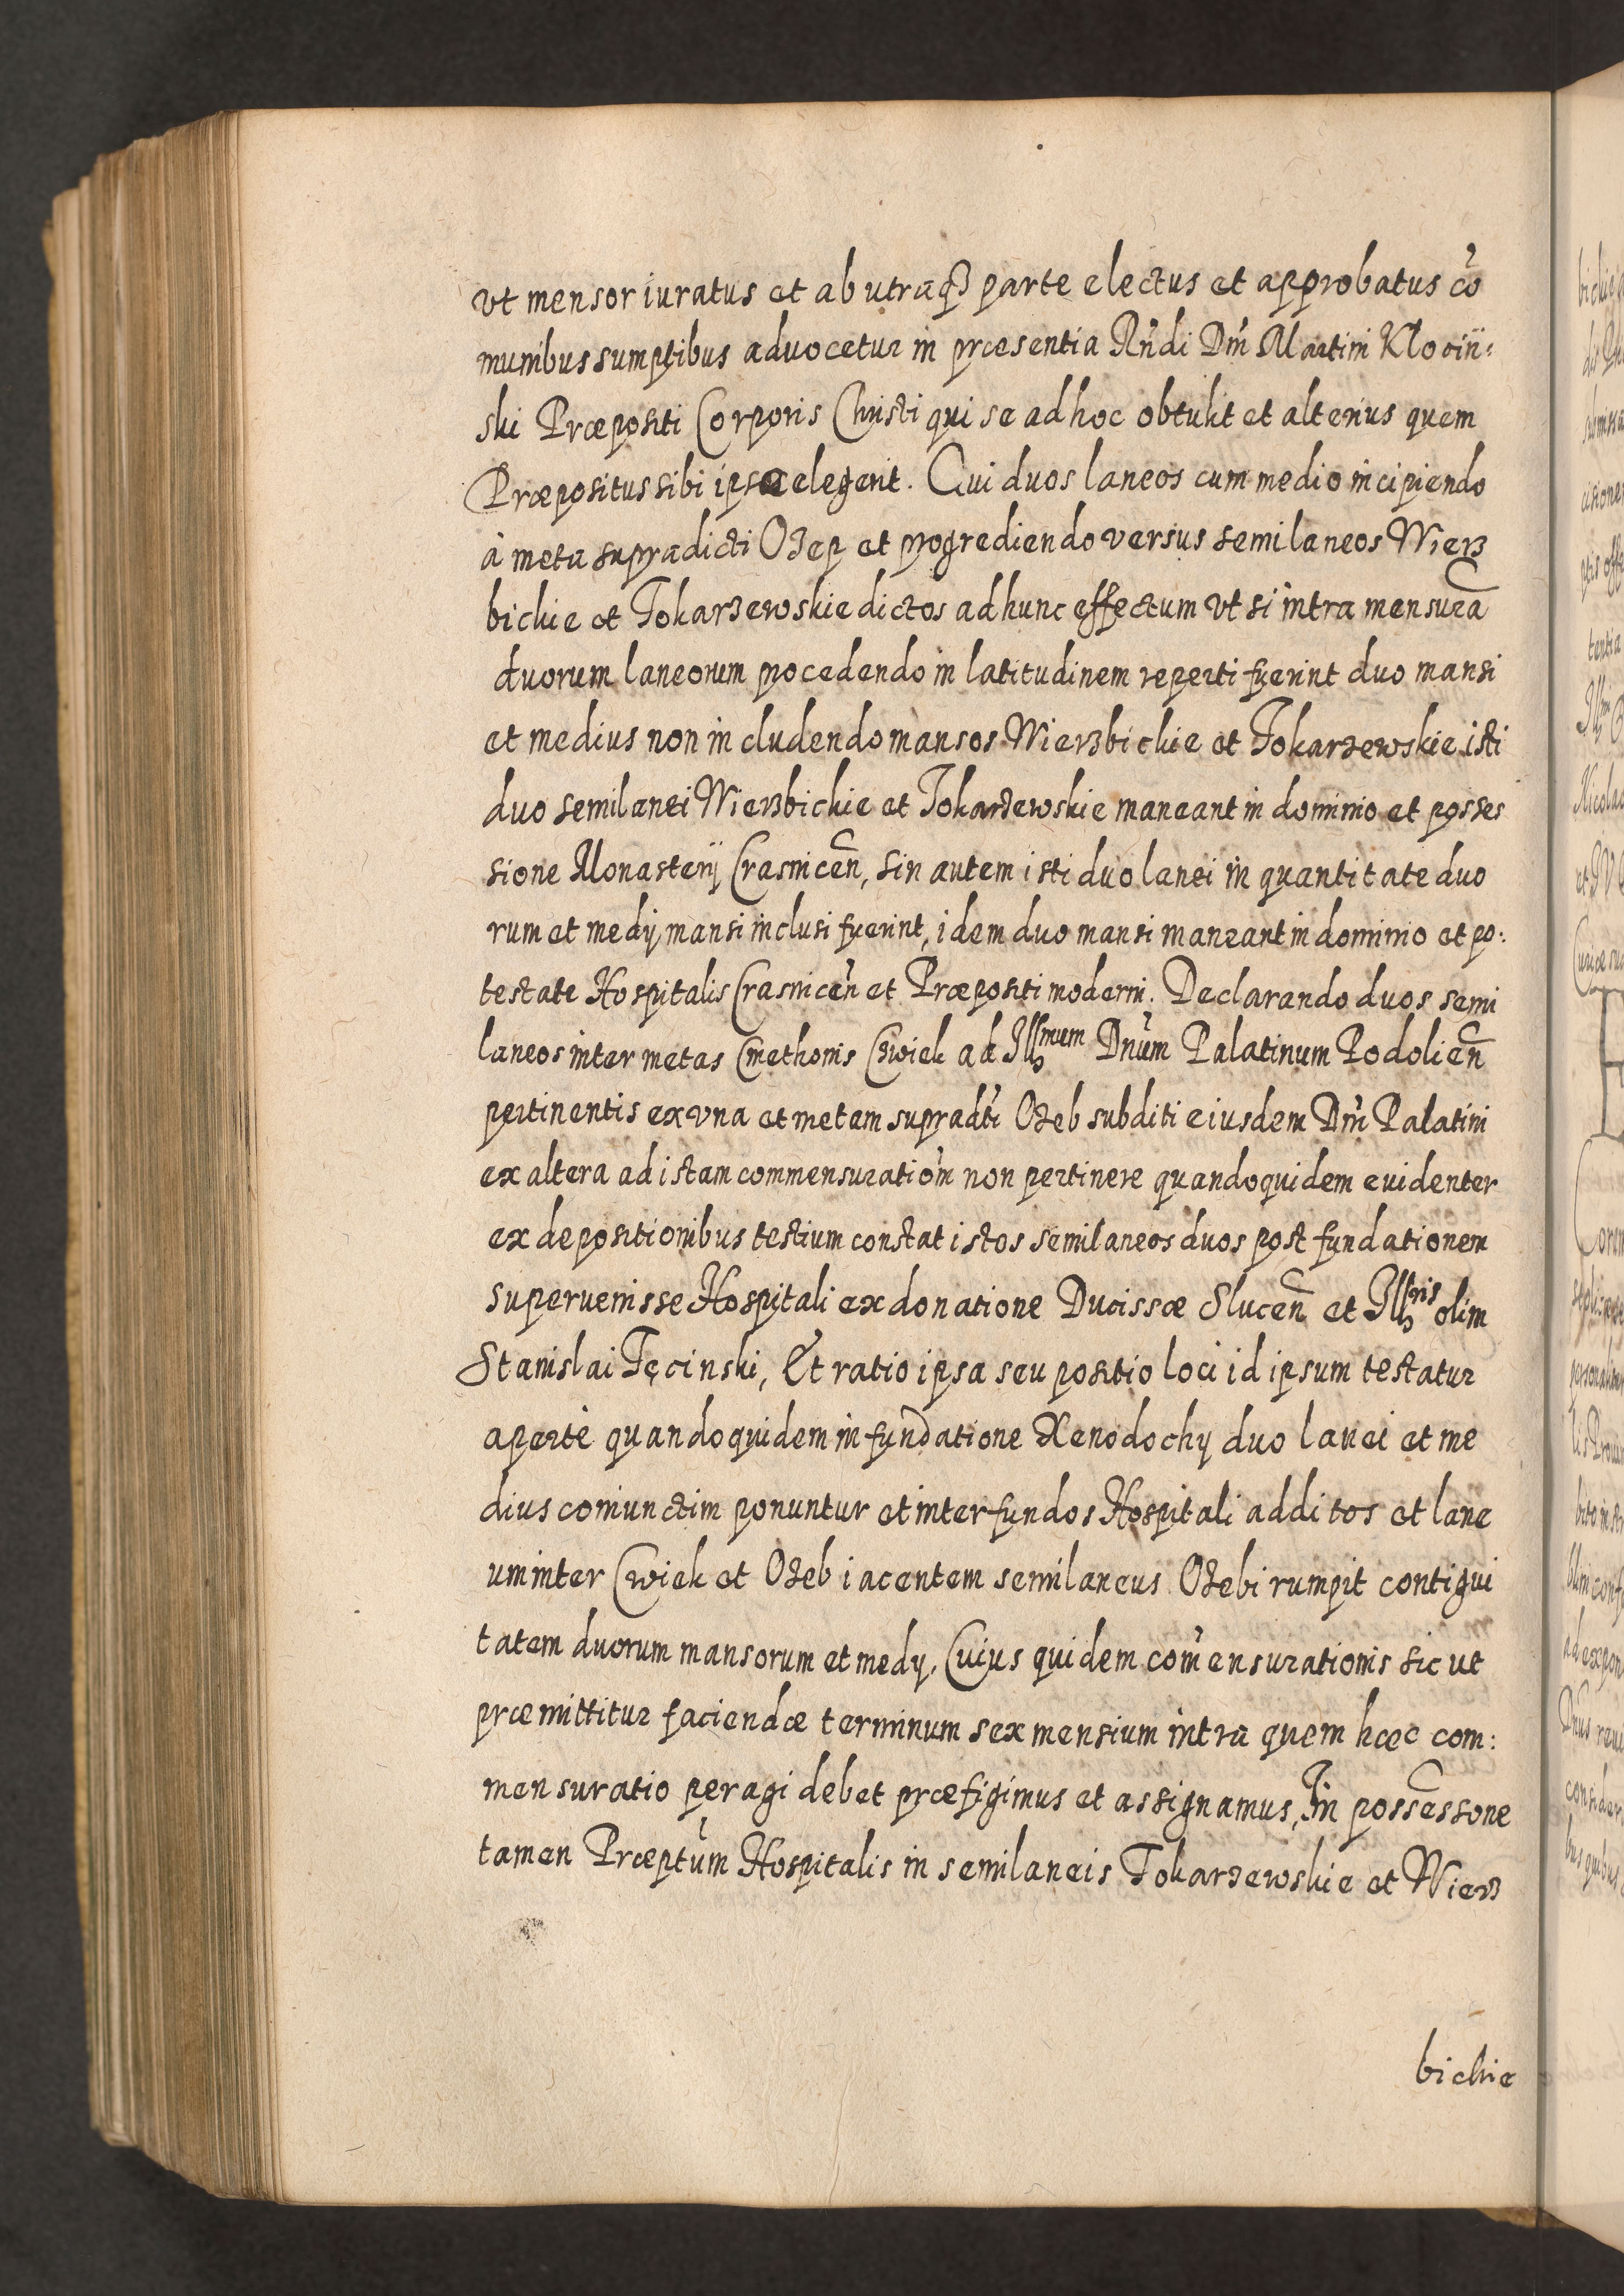 vt mensor iuratus et ab utraq₃ parte electus et approbatus cõ
munibus sumptibus aduocetur in præsentia Rñdi Dñi Martini Klociń-
ski Præpositi Corporis Christi qui se ad hoc obtulit et alterius quem
Præpositus sibi ipse elegerit. Qui duos laneos cum medio incipiendo
à meta supradicti Ozep et progrediendo versus semilaneos Wierz
bickie et Tokarzewskie dictos ad hunc effectum vt si intra mensurã
duorum laneorum procedendo in latitudinem reperti fuerint duo mansi
et medius non includendo mansos Wierzbickie et Tokarzewskie isti
duo semilanei Wierzbickie et Tokarzewskie maneant in dominio et posses
sione Monasterij Crasnicen̄, sin autem isti duo lanei in quantitate duo
rum et medij mansi inclusi fuerint, idem duo mansi maneant in dominio et po:
testate Hospitalis Crasnicen̄ et Præpositi moderni. Declarando duos semi
laneos inter metas Cmethonis Cwiek ad Illmum Dnūm Palatinum Podolien̄
pertinentis ex vna et metam supradti Ozeb subditi eiusdem Dñi Palatini
ex altera ad istam commensuratiom̄ non pertinere quandoquidem euidenter
ex depositionibus testium constat istos semilaneos duos post fundationem
superuenisse Hospitali ex donatione Ducissæ Slucen̄ et Illris olim
Stanislai Tęcinski, Et ratio ipsa seu positio loci id ipsum testatur
apertè quandoquidem in fundatione Xenodochij duo lanei et me
dius coniunctim ponuntur et inter fundos Hospitali additos et lane
um inter Cwiek et Ozeb iacentem semilaneus Ozebi rumpit contigui
tatem duorum mansorum et medij. Cuius quidem com̄ensurationis sic ut
præmittitur faciendæ terminum sex mensium intra quem hæc com:
mensuratio peragi debet præfigimus et assignamus, In possessone
tamen Præptūm Hospitalis in semilaneis Tokarzewskie et Wierz
bickie